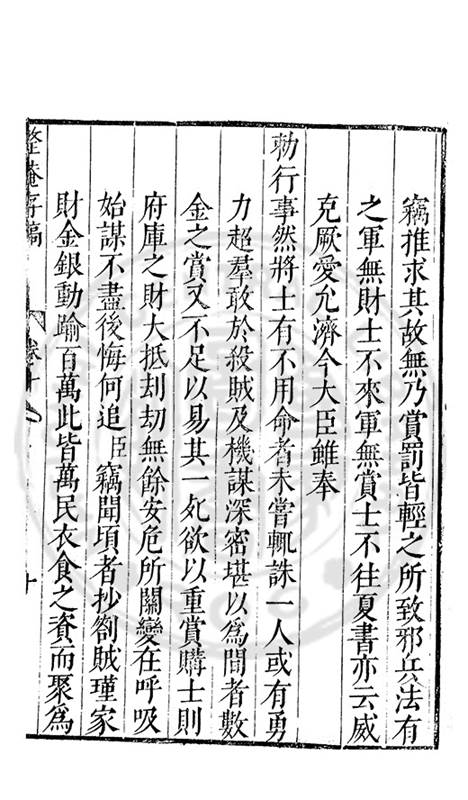 竊推求其故無乃賞罰皆輕之所致邪兵法有
之軍無財士不來軍無賞士不往夏書亦云威
克厥愛允濟今大臣雖奉
勑行事然將士有不用命者未嘗輒誅一人或有勇
力超羣敢於殺賊及機謀深密堪以爲間者數
金之賞又不足以易其一死欲以重賞購士則
府庫之財大抵刦劫無餘安危所關變在呼吸
始謀不盡後悔何追臣竊聞頃者抄劄賊瑾家
財金銀動踰百萬此皆萬民衣食之資而聚爲
整菴存稿
卷十
十